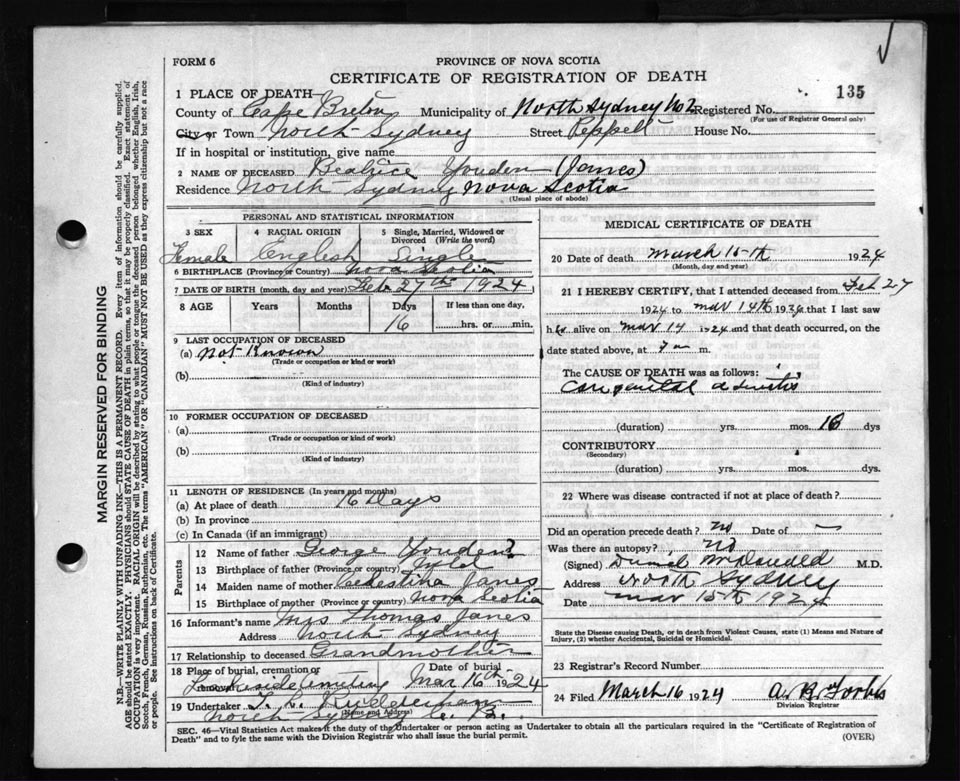 FORM 6
PROVINCE OF NOVA SCOTIA
CERTIFICATE OF REGISTRATION OF DEATH
135
1 PLACE OF DEATH
County of Cape Breton Municipality of North Sydney No 2 Registered No.
(For use of Registrar General only)
City or Town North Sydney Street Peppett House No.
If in hospital or institution, give name
2 NAME OF DECEASED Beatrice Youden (Janes)
Residence North Sydney Nova Scotia
(Usual place of abode)
PERSONAL AND STATISTICAL INFORMATION
3 SEX 4 RACIAL ORIGIN 5 Single, Married, Widowed or Divorced (Write the word)
Female English Single
6 BIRTHPLACE (Province or Country) Nova Scotia
7 DATE OF BIRTH (month, day and year) Feb 27th 1924
8 AGE Years Months Days If less than one day,
16 hrs. or min.
9 LAST OCCUPATION OF DECEASED
(a) Not Known
(Trade or occupation or kind or work)
(b)
(Kind of industry)
10 FORMER OCCUPATION OF DECEASED
(a)
(Trade or occupation or kind of work)
(b)
(Kind of industry)
11 LENGTH OF RESIDENCE (In years and months)
(a) At place of death 16 Days
(b) In province
(c) In Canada (if an immigrant)
Parents
12 Name of father George Youden?
13 Birthplace of father (Province or country) Nfld
14 Maiden name of mother Celestina Janes
15 Birthplace of mother (Province or country) Nova Scotia
16 Informant's name Mrs Thomas Janes
Address North Sydney
17 Relationship to deceased Grandmother
18 Place of burial, cremation or removal Date of burial
Lakeside Cemetery Mar 16th 1924
19 Undertaker
(Name and Address)
North Sydney C. B.
MEDICAL CERTIFICATE OF DEATH
20 Date of death March 15-th 1924
(Month, day and year)
21 I HEREBY CERTIFY, that I attended deceased from Feb 27
1924 to mar 14th 1924 that I last saw
her alive on mar 14 1924 and that death occurred, on
date stated above, at 7 a m.
The CAUSE OF DEATH was as follows:
Congenital
(duration) yrs. mos. 16 dys
CONTRIBUTORY
(Secondary)
(duration) yrs. mos. dys.
22 Where was disease contracted if not at place of death?
Did an operation precede death? no Date of —
Was there an autopsy? NO
(Signed) McDonald M.D.
Address North Sydney
Date mar 15th 1924
State the Disease causing Death, or in death from Violent Causes, state (1) Means and Nature of Injury, (2) whether Accidental, Suicidal or Homicidal.
23 Registrar's Record Number
24 Filed March 16 1924 A. R. Forbes
Division Registrar
SEC. 46—Vital Statistics Act makes it the duty of the Undertaker or person acting as Undertaker to obtain all the particulars required in the "Certificate of Registration of
Death" and to fyle the same with the Division Registrar who shall issue the burial permit. (OVER)
MARGIN RESERVED FOR BINDING
N.B.—WRITE PLAINLY WITH UNFADING INK—THIS IS A PERMANENT RECORD. Every item of information should be carefully supplied.
AGE should be stated EXACTLY. PHYSICIANS should STATE CAUSE OF DEATH in plain terms, so that it may be properly classified. Exact statement of
OCCUPATION is very important. RACIAL ORIGIN will be described by stating to what people or tongue the deceased person belonged whether English, Irish,
Scotch, French, German, Russian, Ruthenian, etc. The terms "AMERICAN" or "CANADIAN" MUST NOT BE USED as they express citizenship but not a race
or people. See instructions on back of Certificate.